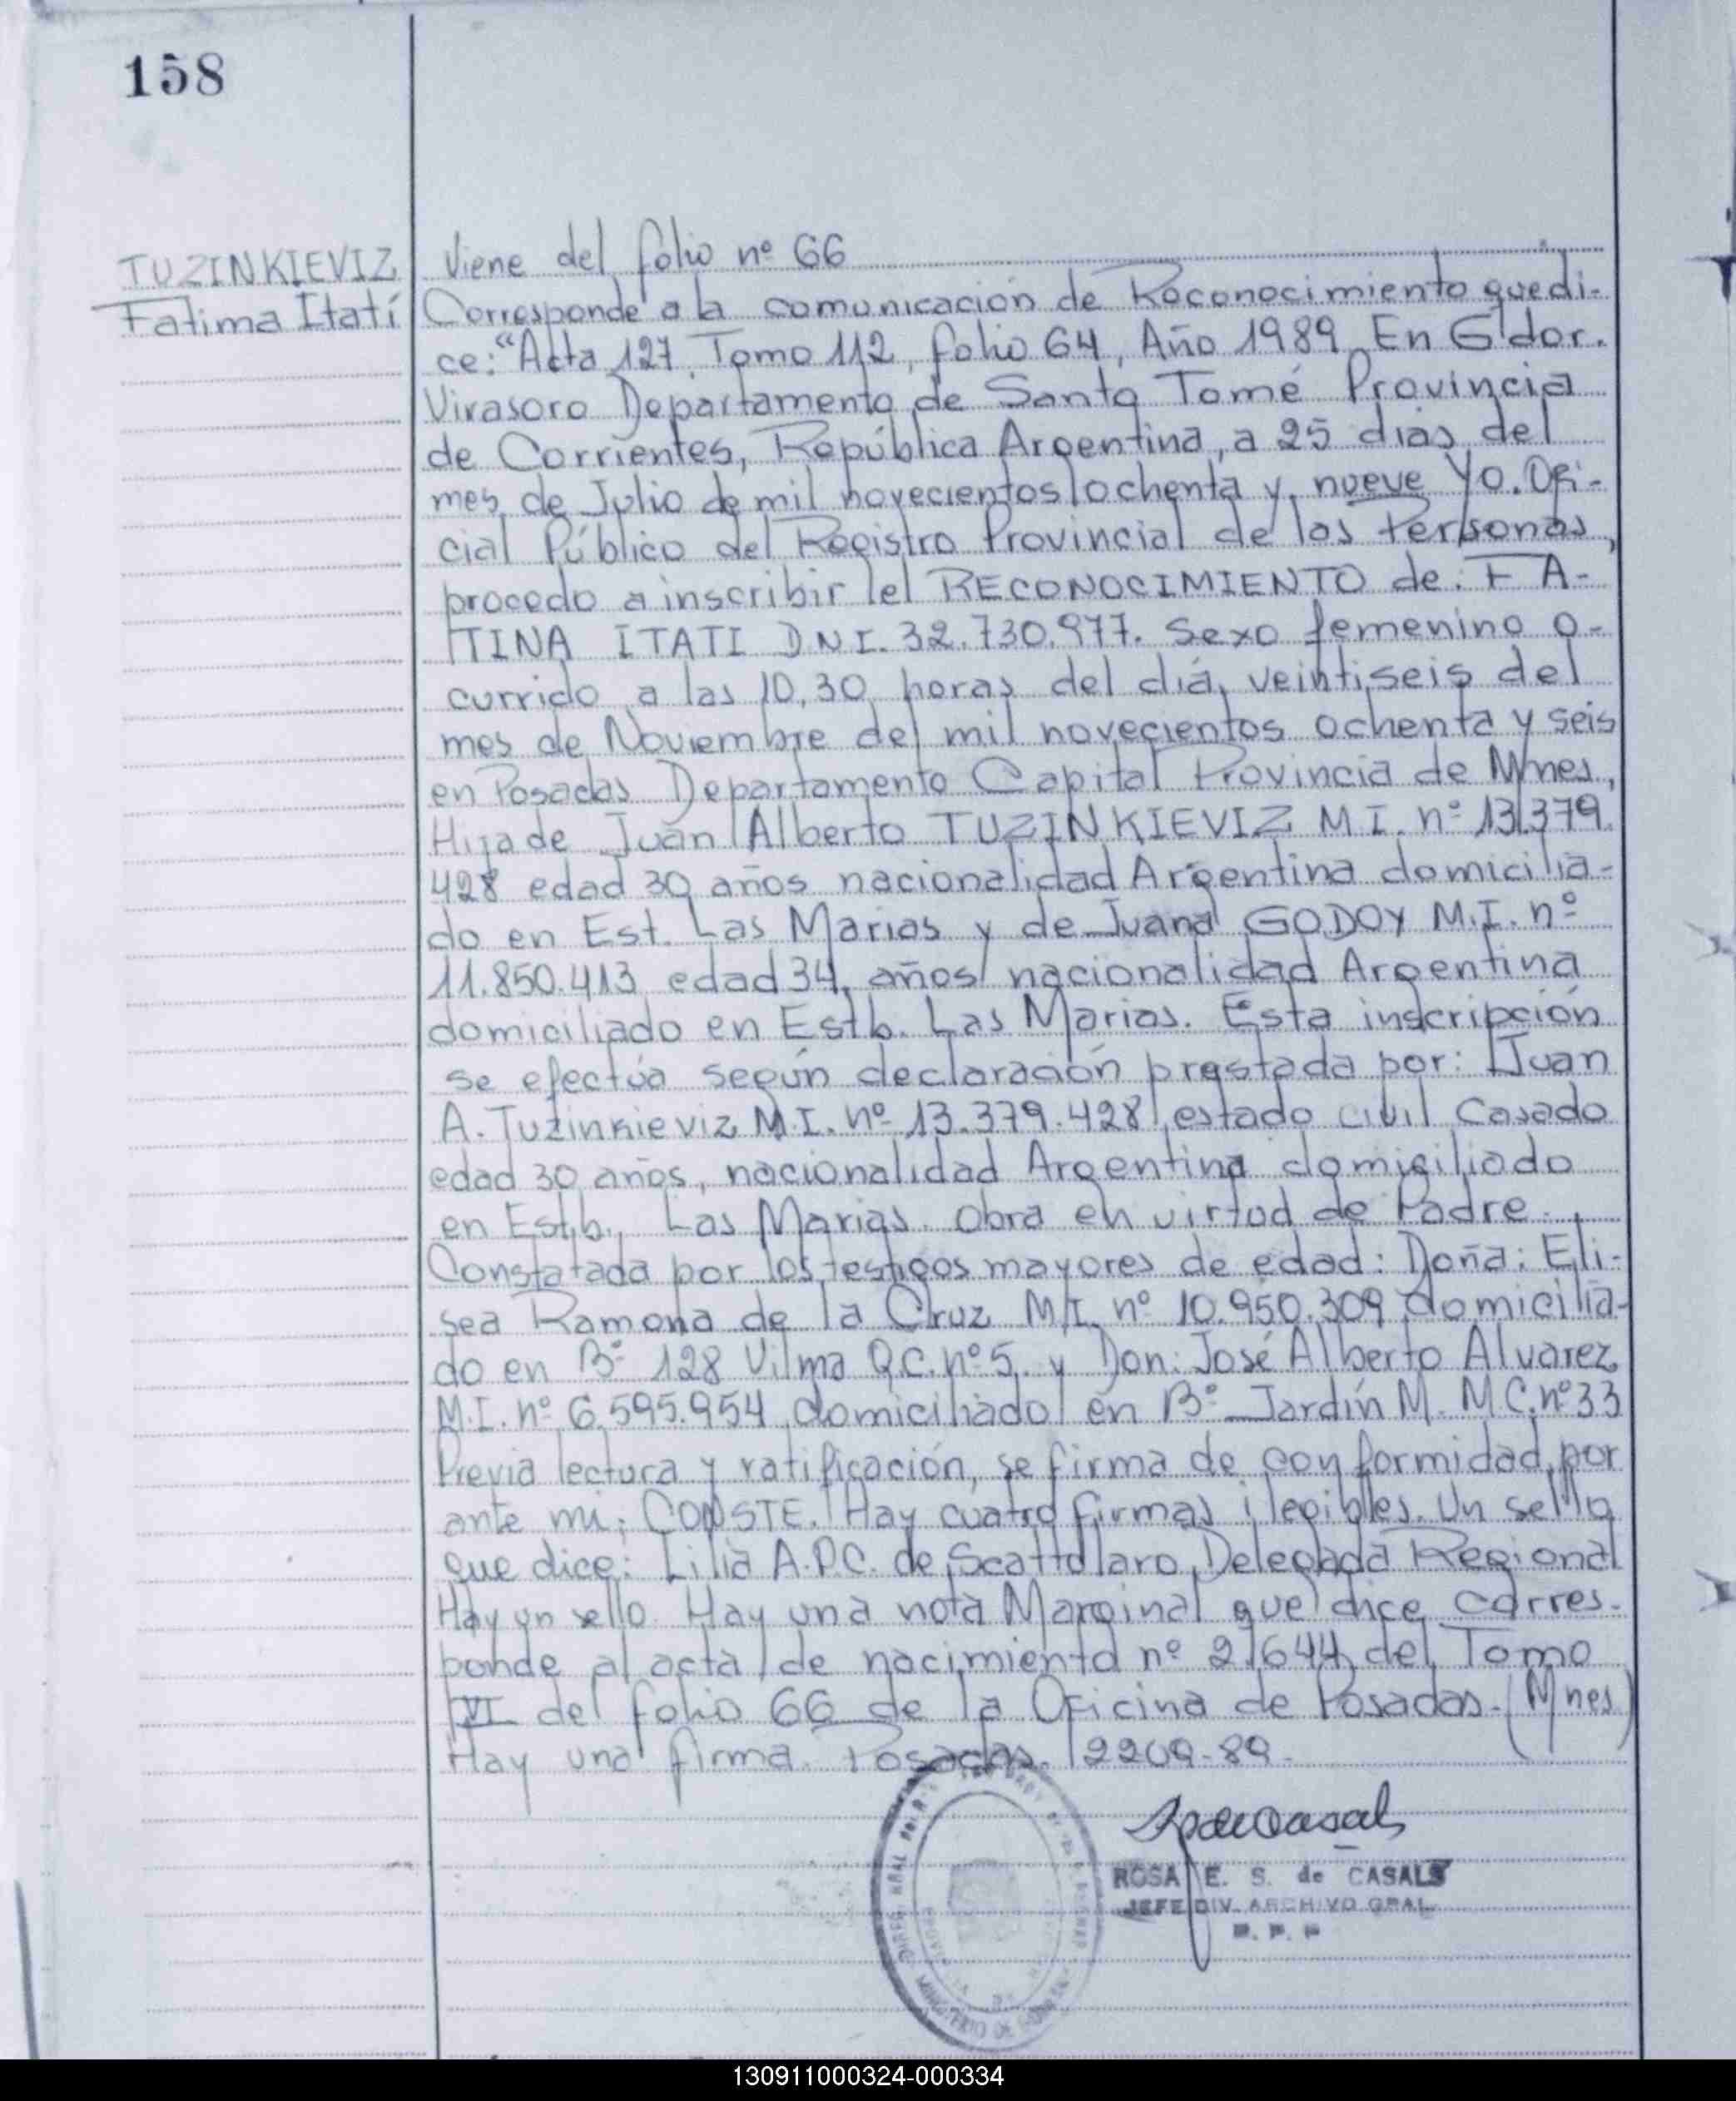 158
TUZINKIEVIZ
Fatima Itatí
Viene del folio nº 66
Corresponde a la comunicación de Reconocimiento que di-
ce: "Acta 127 Tomo 112, folio 64, Año 1989 En G'dor.
Virasoro Departamento de Santo Tomé Provincia
de Corrientes, República Argentina, a 25 dias del
mes de Julio de mil novecientos ochenta y nueve Yo. Ofi-
cial Público del Registro Provincial de las Personas,
procedo a inscribir el RECONOCIMIENTO de: FA-
TINA ITATI D.N.I. 32.730.977. Sexo femenino o-
currido a las 10,30 horas del diá, veintiseis del
mes de Noviembre del mil novecientos ochenta y seis
en Posadas Departamento Capital Provincia de Mnes,
Hija de Juan Alberto TUZINKIEVIZ M.I. nº 13.379.
428 edad 30 años nacionalidad Argentina domicilia-
do en Est. Las Marias y de Juana GODOY M.I. nº
11.850.413 edad 34, años nacionalidad Argentina
domiciliado en Estb. Las Marias. Esta inscripción
se efectúa según declaración prestada por: Juan
A. Tuzinkieviz M.I. nº 13.379.428 estado civil Casado
edad 30 años, nacionalidad Argentina domiciliado
en Estb. Las Marias. Obra en virtud de Padre.
Constatada por los testigos mayores de edad: Doña: Eli-
sea Ramona de la Cruz M.I. nº 10.950.309 domicilia-
do en Bº 128 Vilma Q.C. nº 5. y Don: José Alberto Alvarez
M.I. nº 6.595.954 domiciliado en Bº Jardín M. M C. nº 33
Previa lectura y ratificación, se firma de conformidad, por
ante mi; CONSTE. Hay cuatro firmas ilegibles. Un sello
que dice: Lilia A.P.C. de Scattolaro, Delegada Regional
Hay un sello. Hay una nota Marginal que dice corres-
ponde al acta de nacimiento nº 2.644, del Tomo
VI del folio 66 de la Oficina de Posadas. (Mnes)
Hay una firma. Posadas. 2209-89.
ROSA E. S. de CASALS
JEFE DIV. ARCHIVO GRAL.
R. P. P
130911000324-000334